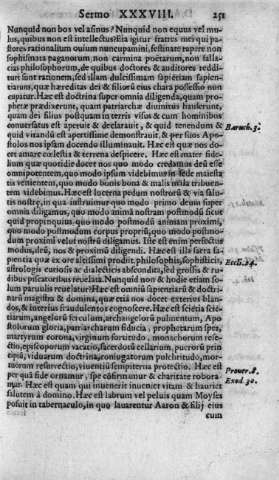 Sermo XXXVIII. 251
Nunquid non bos vel asinus? Nunquid non equus vel mu-
lus, quibus non est intellectus? Eia igitur fratres mei qui pa-
stores rationalium ouium nuncupamini, festinate rapere non
sophismata paganorum non carmina poëtarum, non falla-
cias philosophorum, de quibus doctores & auditores reddi-
turi sunt rationem, sed illam dulcissimam sapiẽtiam sapien-
tiarum, quæ hæreditas dei & filiorũ eius chara possessio nun
cupatur. Hæc est doctrina super omnia diligenda, quam pro-
phetæ prædixerunt, quam patriarchæ diuinitus hauserunt,
quam dei filius postquam in terris visus & cum hominibus
conuersatus est aperuit & declarauit, quid tenendum & Baruch. 3.
quid vitandũ est apertissime demonstrauit, & per suos Apo-
stolos nos ipsam docendo illuminauit. Hæc est quæ nos do-
cet amare cœlestia & terrena despicere. Hæc est mater fide-
lium quæ quotidie docet nos quo modo credamus deũ esse
omnipotentem, quo modo ipsum videbimus in sede maiesta
tis venientem, quo modo bonis bona & malis mala tribuen-
tem videbimus. Hæc est lucerna pedum nostrorũ & via salu-
tis nostræ, in qua instruimur quo modo primo deum super
omnia diligamus, quo modo animã nostram postmodũ sicut
quid propinquius, quo modo postmodũ animam proximi,
quo modo postmodum corpus proprjũ, quo modo postmo-
dum proximi velut nostrũ diligamus. Hæc est enim perfectus
modus, dei, nos & proximũ diligendi. Hæc est illa sacra sa-
pientia quæ ex ore altissimi prodijt, philosophis, sophisticis, Eccli. 24.
astrologis curiosis ac dialecticis abscondita, sed grossis & ru
dibus piscatoribus reuelata. Nunquid non & hodie etiam so-
lum paruulis reuelatur? Hæc est omnis sapientiarũ & doctri-
narũ magistra & domina, quæ etiã nos docet exteriùs blan-
dos, & interiùs fraudulentos cognoscere. Hæc est scietia sciẽ-
tiarum, angelorũ ferculum, archãgelorũ pulmentum, Apo-
stolorum gloria, patriarcharum fiducia, prophetarum spes,
martyrum corona, virginum fortitudo, monachorum refe-
ctio, episcoporum vacatio, sacerdotũ cellarium, puerorũ prin
cipiũ, viduarum doctrina, coniugatorum pulchritudo, mor-
tuorum resurrectio, viuentiũ sempiterna protectio. Hæc est
per quã fide ornamur, spe cõfirmamur & charitate robora- Prouer. 8.
mur. Hæc est quam qui inuenerit inueniet vitam & hauriet Exod. 30.
salutem à domino. Hæc est labrum vel peluis quam Moyses
posuit in tabernaculo, in quo lauarentur Aaron & filij eius
cum